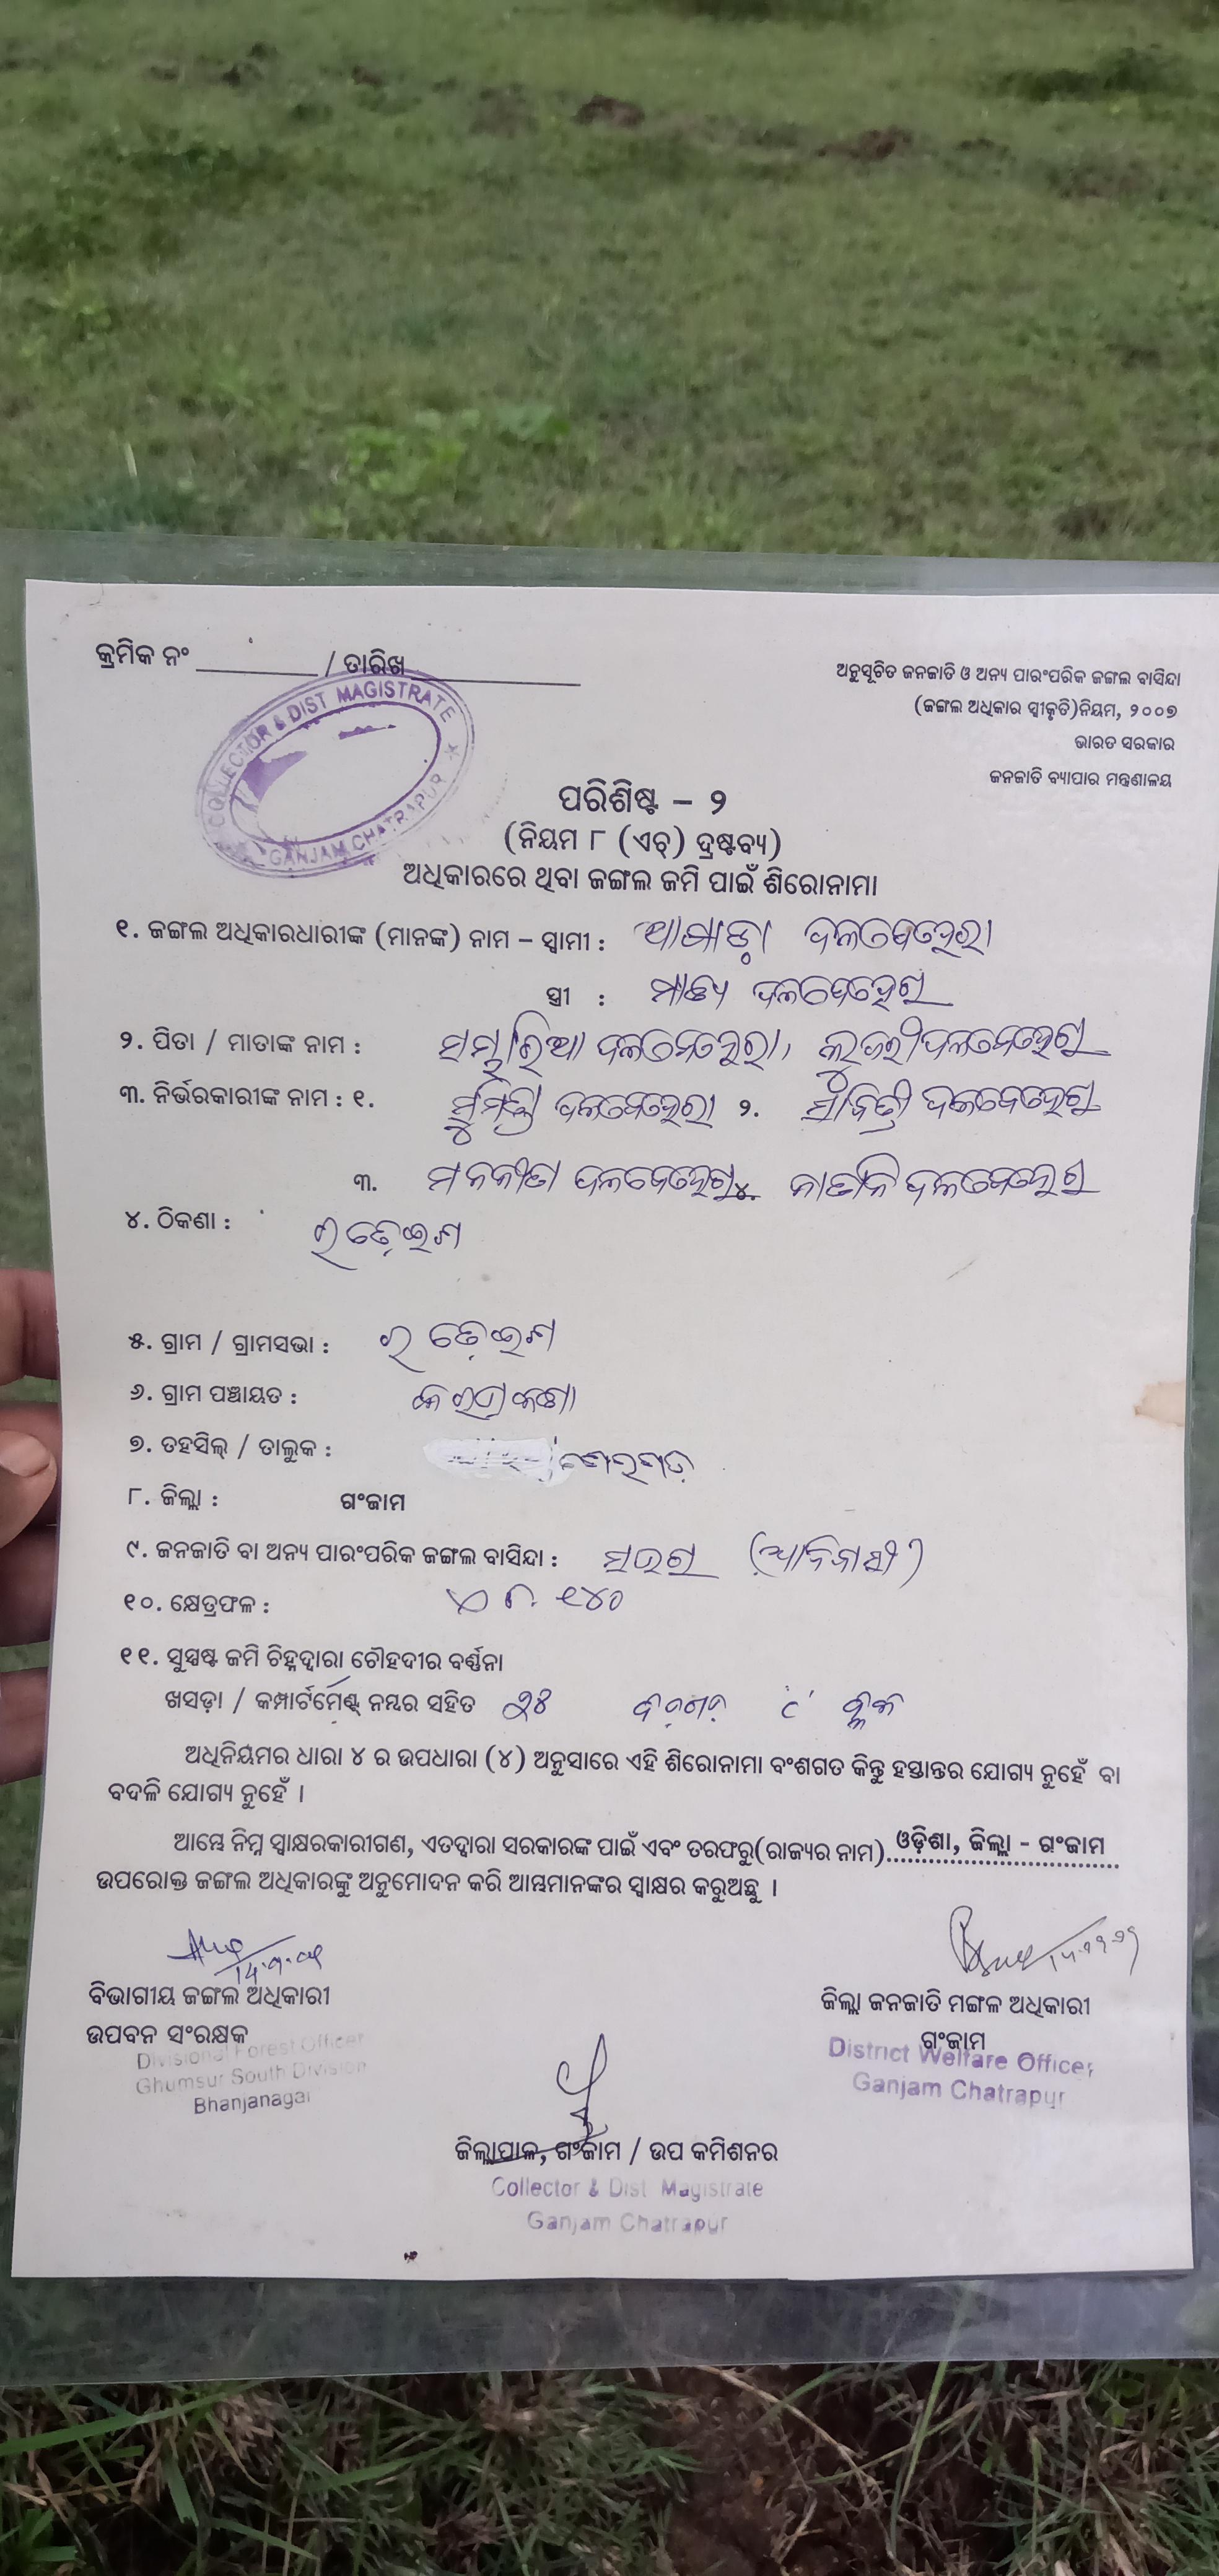 କ୍ରମିକ ନଂ / ତାରିଖ
ଅନୁସୂଚିତ ଜନଜାତି ଓ ଅନ୍ୟ ପାରଂପରିକ ଜଙ୍ଗଲ ବାସିନ୍ଦା
(ଜଙ୍ଗଲ ଅଧିକାର ସ୍ୱୀକୃତି)ନିୟମ, ୨୦୦୭
ଭାରତ ସରକାର
ଜନଜାତି ବ୍ୟାପାର ମନ୍ତ୍ରଣାଳୟ
COLLECTOR & DIST MAGISTRATE
GANJAM CHATRAPUR
ପରିଶିଷ୍ଟ – ୨
(ନିୟମ ୮ (ଏଚ୍) ଦ୍ରଷ୍ଟବ୍ୟ)
ଅଧିକାରରେ ଥିବା ଜଙ୍ଗଲ ଜମି ପାଇଁ ଶିରୋନାମା
୧. ଜଙ୍ଗଲ ଅଧିକାରଧାରୀଙ୍କ (ମାନଙ୍କ) ନାମ – ସ୍ୱାମୀ : ଦଳବେହେରା
ସ୍ତ୍ରୀ : ଦଳବେହେରା
୨. ପିତା / ମାତାଙ୍କ ନାମ : ଦଳବେହେରା, ଦଳବେହେରା
୩. ନିର୍ଭରକାରୀଙ୍କ ନାମ : ୧. ସୁମିତ୍ରା ଦଳବେହେରା ୨. ସାବିତ୍ରୀ ଦଳବେହେରା
୩. ଦଳବେହେରା ୪. ଦଳବେହେରା
୪. ଠିକଣା :
୫. ଗ୍ରାମ / ଗ୍ରାମସଭା :
୬. ଗ୍ରାମ ପଞ୍ଚାୟତ :
୭. ତହସିଲ୍ / ତାଲୁକ : ଶେରଗଡ଼
୮. ଜିଲ୍ଲା : ଗଂଜାମ
୯. ଜନଜାତି ବା ଅନ୍ୟ ପାରଂପରିକ ଜଙ୍ଗଲ ବାସିନ୍ଦା : ସଉରା (ଆଦିବାସୀ)
୧୦. କ୍ଷେତ୍ରଫଳ : ୧୪୦
୧୧. ସୁସ୍ପଷ୍ଟ ଜମି ଚିହ୍ନଦ୍ୱାରା ଚୌହଦୀର ବର୍ଣ୍ଣନା
ଖସଡ଼ା / କମ୍ପାର୍ଟମେଣ୍ଟ ନମ୍ବର ସହିତ ବ୍ଲକ
ଅଧିନିୟମର ଧାରା ୪ ର ଉପଧାରା (୪) ଅନୁସାରେ ଏହି ଶିରୋନାମା ବଂଶଗତ କିନ୍ତୁ ହସ୍ତାନ୍ତର ଯୋଗ୍ୟ ନୁହେଁ ବା
ବଦଳି ଯୋଗ୍ୟ ନୁହେଁ ।
ଆମ୍ଭେ ନିମ୍ନ ସ୍ୱାକ୍ଷରକାରୀଗଣ, ଏତଦ୍ୱାରା ସରକାରଙ୍କ ପାଇଁ ଏବଂ ତରଫରୁ(ରାଜ୍ୟର ନାମ) ଓଡ଼ିଶା, ଜିଲ୍ଲା - ଗଂଜାମ
ଉପରୋକ୍ତ ଜଙ୍ଗଲ ଅଧିକାରଙ୍କୁ ଅନୁମୋଦନ କରି ଆମ୍ଭମାନଙ୍କର ସ୍ୱାକ୍ଷର କରୁଅଛୁ ।
ବିଭାଗୀୟ ଜଙ୍ଗଲ ଅଧିକାରୀ
ଉପବନ ସଂରକ୍ଷକ
Divisional Forest Officer
Ghumsur South Division
Bhanjanagar
ଜିଲ୍ଲା ଜନଜାତି ମଙ୍ଗଳ ଅଧିକାରୀ
ଗଂଜାମ
District Welfare Officer
Ganjam Chatrapur
ଜିଲ୍ଲାପାଳ, ଗଂଜାମ / ଉପ କମିଶନର
Collector & Dist Magistrate
Ganjam Chatrapur